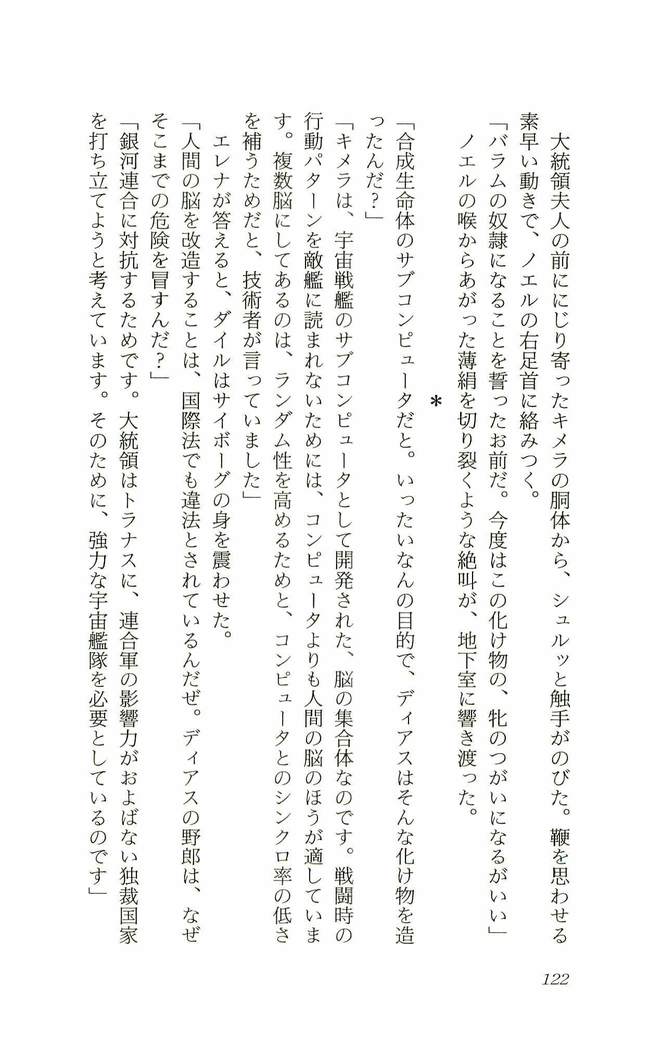 大統領夫人の前ににじり寄ったキメラの胴体から、シュルッと触手がのびた。鞭を思わせる
素早い動きで、ノエルの右足首に絡みつく。
「バラムの奴隷になることを誓ったお前だ。今度はこの化け物の、牝のつがいになるがいい」
ノエルの喉からあがった薄絹を切り裂くような絶叫が、地下室に響き渡った。
＊
「合成生命体のサブコンピュータだと。いったいなんの目的で、ディアスはそんな化け物を造
ったんだ？」
「キメラは、宇宙戦艦のサブコンピュータとして開発された、脳の集合体なのです。戦闘時の
行動パターンを敵艦に読まれないためには、コンピュータよりも人間の脳のほうが適していま
す。複数脳にしてあるのは、ランダム性を高めるためと、コンピュータとのシンクロ率の低さ
を補うためだと、技術者が言っていました」
エレナが答えると、ダイルはサイボーグの身を震わせた。
「人間の脳を改造することは、国際法でも違法とされているんだぜ。ディアスの野郎は、なぜ
そこまでの危険を冒すんだ？」
「銀河連合に対抗するためです。大統領はトラナスに、連合軍の影響力がおよばない独裁国家
を打ち立てようと考えています。そのために、強力な宇宙艦隊を必要としているのです」
122